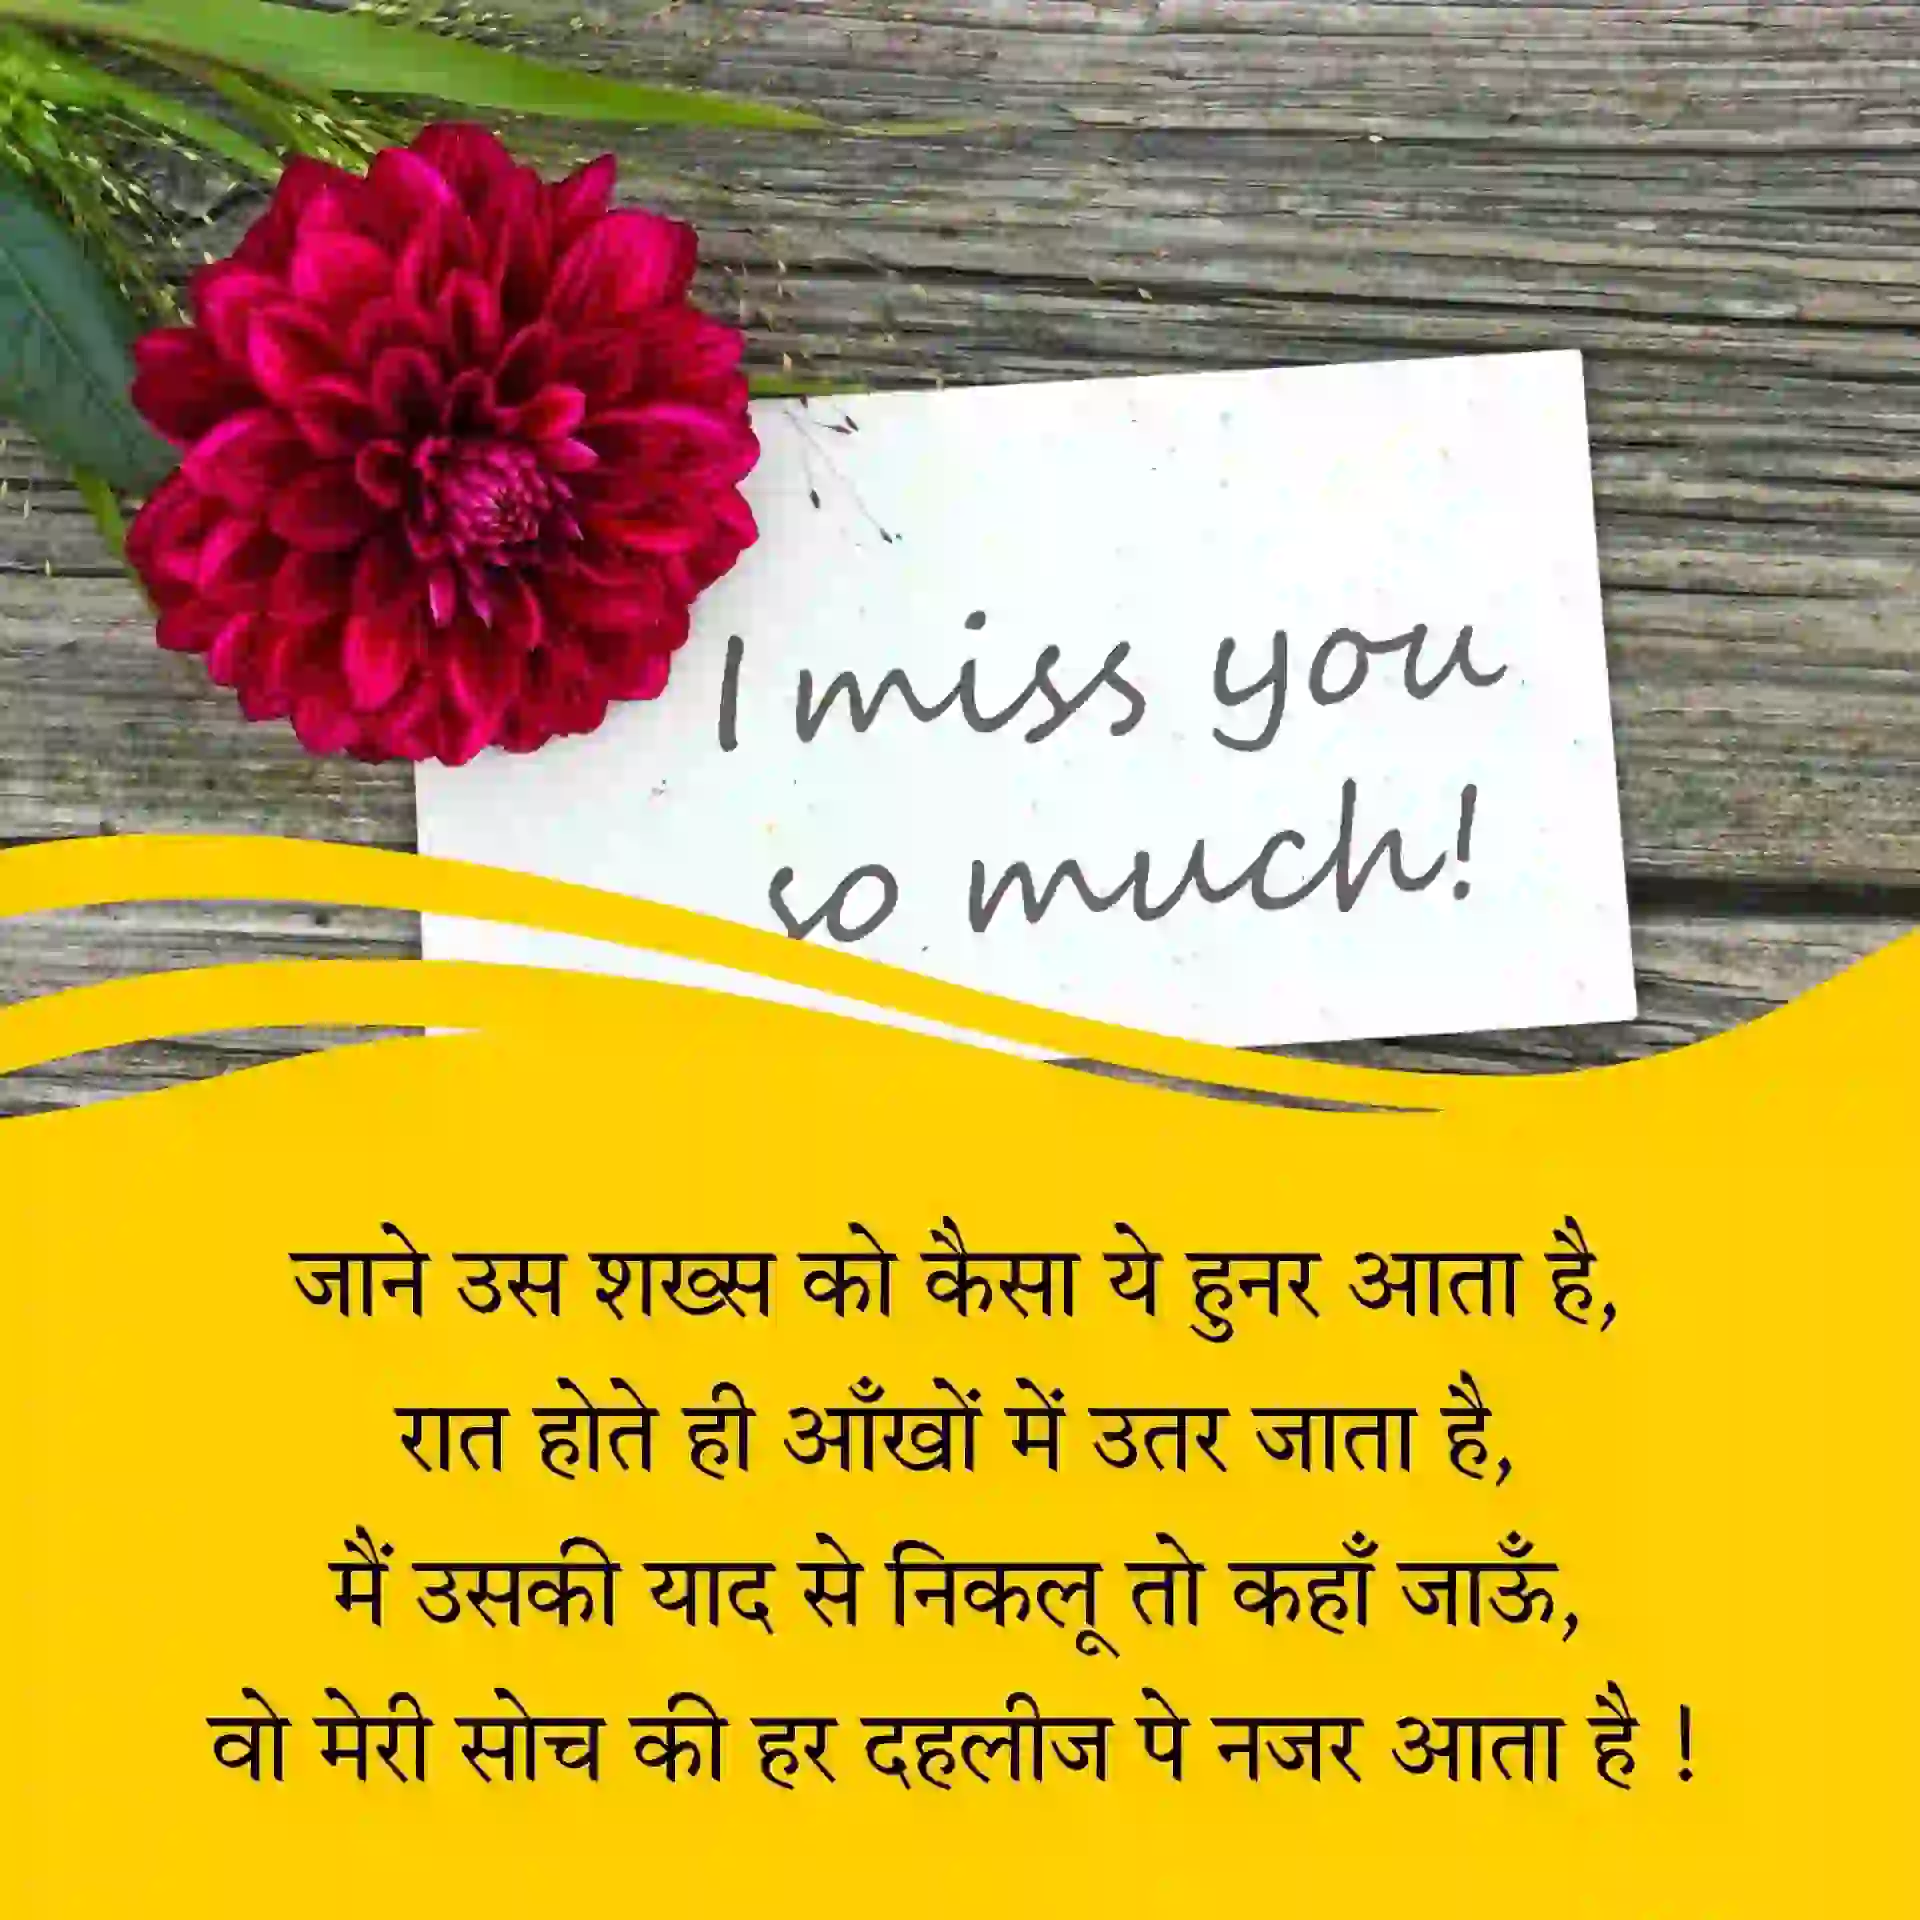 I miss you
so much!
जाने उस शख्स को कैसा ये हुनर आता है,
रात होते ही आँखों में उतर जाता है,
मैं उसकी याद से निकलू तो कहाँ जाऊँ,
वो मेरी सोच की हर दहलीज पे नजर आता है !